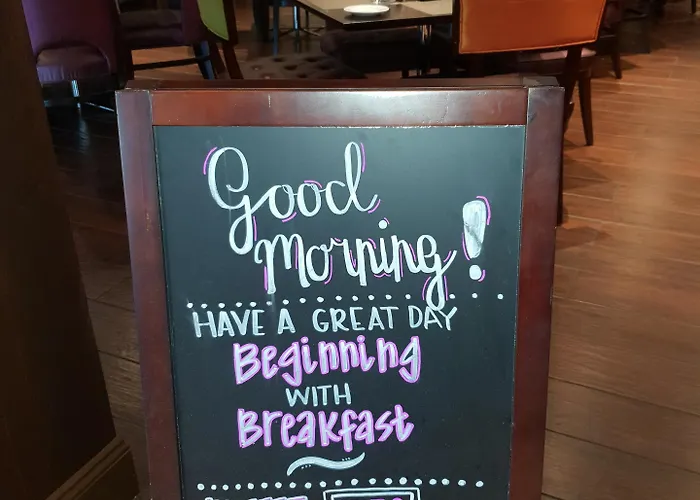 Good
Morning!
HAVE A GREAT DAY
Beginning
WITH
Breakfast